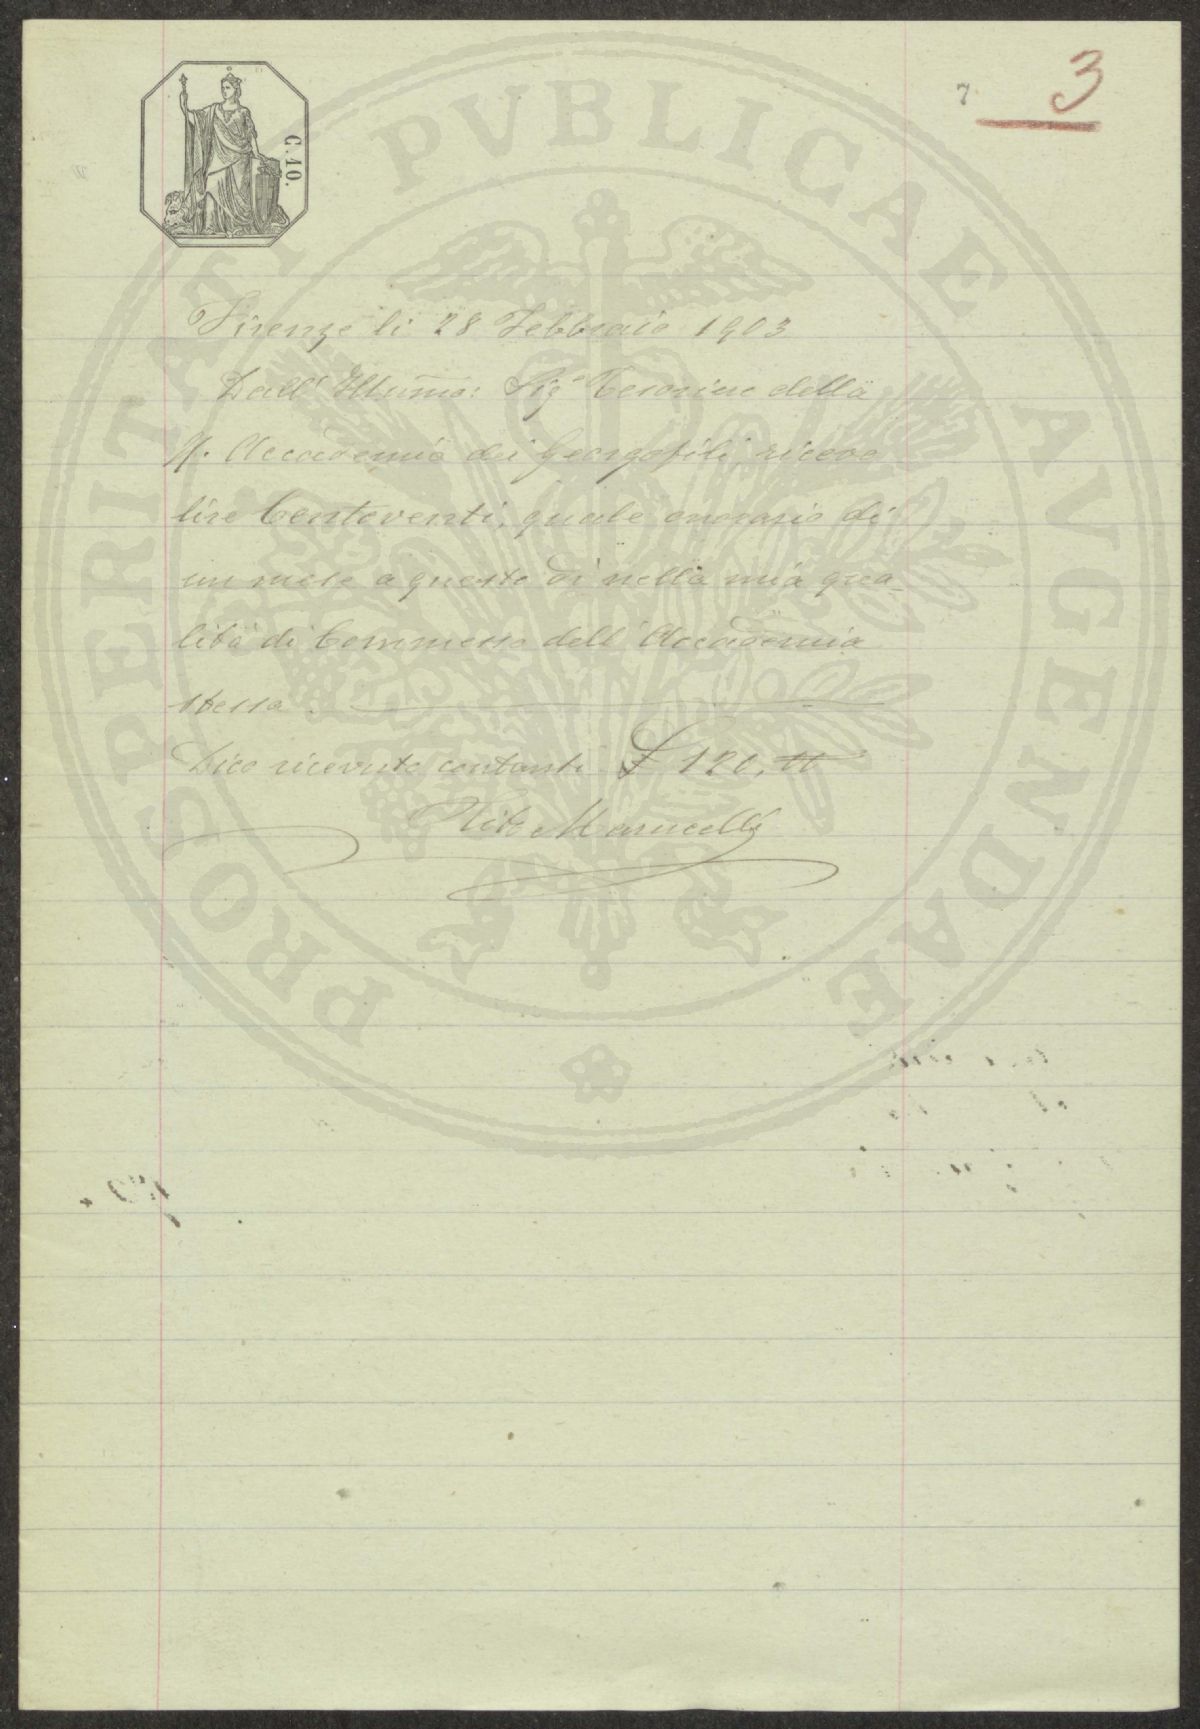 C. 10.
7
3
Firenze li 28 Febbraio 1903
Dall' Illumo: Sigr Tesoriere della
R. Accademia dei Georgofili ricevo
lire Centoventi, quale onorario di
un mese a questo dì nella mia qua-
lità di Commesso dell' Accademia
stessa.
Dico ricevute contanti £ 120. tt
Vito Marucelli
PROSPERITATI PVBLICAE AVGENDAE